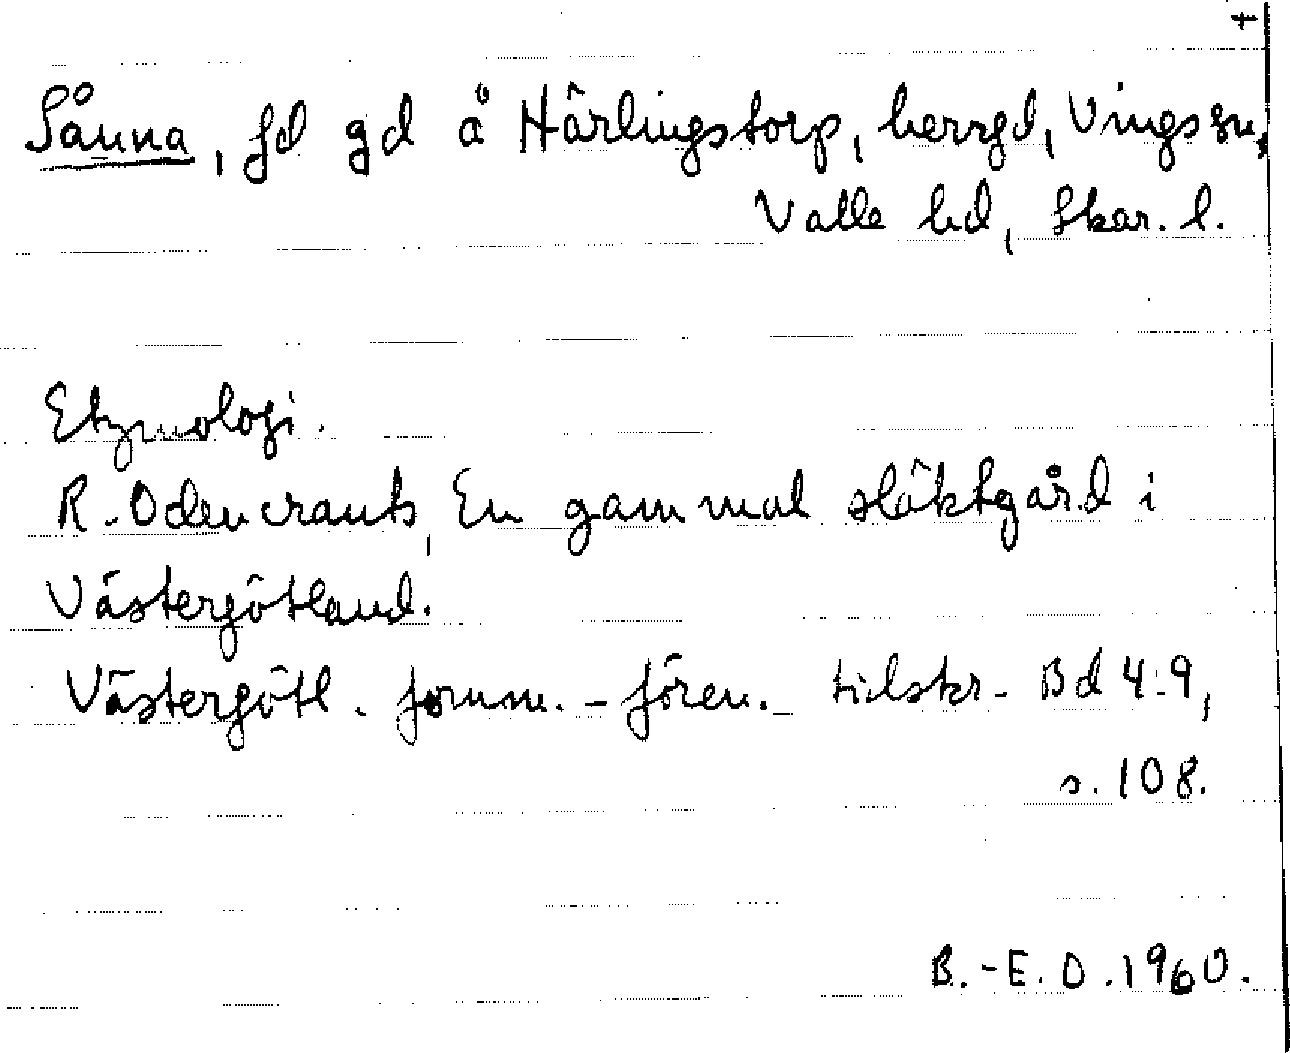 Sånna, fd gd å Härlingstorp, herrgd, Vings sn,
Valle hd, Skar. l.
Etymologi.
R. Odencrants, En gammal släktgård i
Västergötland.
Västergötl. fornm.-fören. tidskr. Bd 4:9,
s. 108.
B.-E. O. 1960.